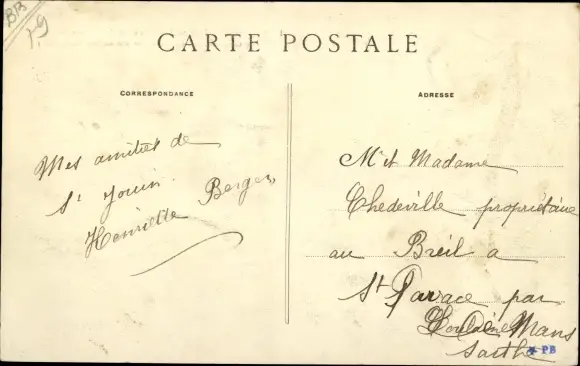 BB
7-9
CARTE POSTALE
CORRESPONDANCE
ADRESSE
Mes amitiés de
St Jouin
Henriette Berger
Mr et Madame
Chedeville propriétaire
au Breil a
St Pavace par
Le Mans
Sarthe
PB